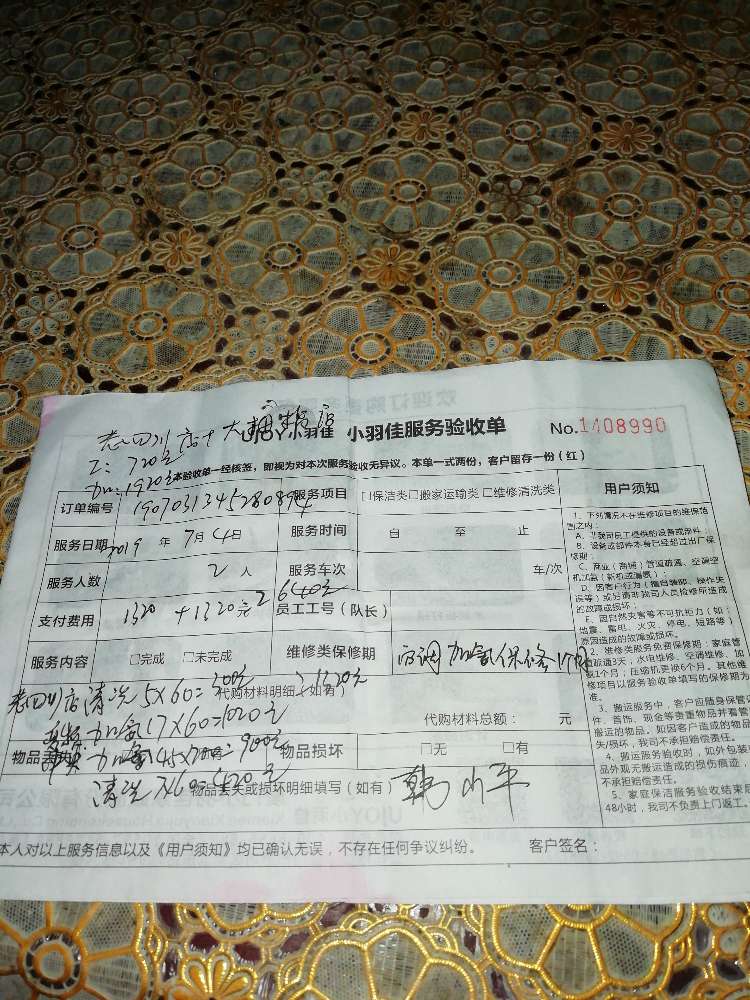 欢迎订购
老四川店+大
小羽佳 小羽佳服务验收单 No.1408990
工:720元
加:1920元
本验收单一经核签，即视为对本次服务验收无异议。本单一式两份，客户留存一份（红）
订单编号 190703134528089 服务项目 □保洁类□搬家运输类□维修清洗类 用户须知
服务日期 2019 年 7月4日 服务时间 自 至 止
服务人数 2 人 服务车次 车/次
支付费用 1320 + 1320元 2640元 员工工号（队长）
服务内容 □完成 □未完成 维修类保修期 空调加氟保修1个月
老四川店清洗5X60=300元 代购材料明细（如有） 1320元
加氟17X60=1020元 代购材料总额： 元
物品丢失 加氟45X =900元 物品损坏 □无 □有
清洗7X60=420元 物品丢失或损坏明细填写（如有） 韩
本人对以上服务信息以及《用户须知》均已确认无误，不存在任何争议纠纷。 客户签名：
1、下列情况不在维修项目的维保范
围之内：
A、非我司员工提供的设备或部件；
B、设备或部件本身已经超过出厂保
修期；
C、商业（商铺）管道疏通、空调空
机加氟（新机或漏氟）
D、因客户行为（擅自装卸、操作失
误等）或另请非我司人员检修所造成
的故障或损坏；
E、因自然灾害等不可抗力（如：
地震、雷电、火灾、停电、短路等）
原因造成的故障或损坏。
2、维修类服务免费保修期：家庭管
道疏通3天，水电维修、空调维修、加
氟1个月；压缩机更换6个月。其他维
修项目以服务验收单填写的保修期为
准。
3、搬运服务中，客户应随身保管
件、首饰、现金等贵重物品并看管
搬运的物品。如因客户造成的物品
失/损坏，我司不承担赔偿责任。
4、搬运服务验收时，如外包装
品外观无搬运造成的损伤痕迹，
不承担赔偿责任。
5、家庭保洁服务验收结束后
48小时，我司不负责上门返工。